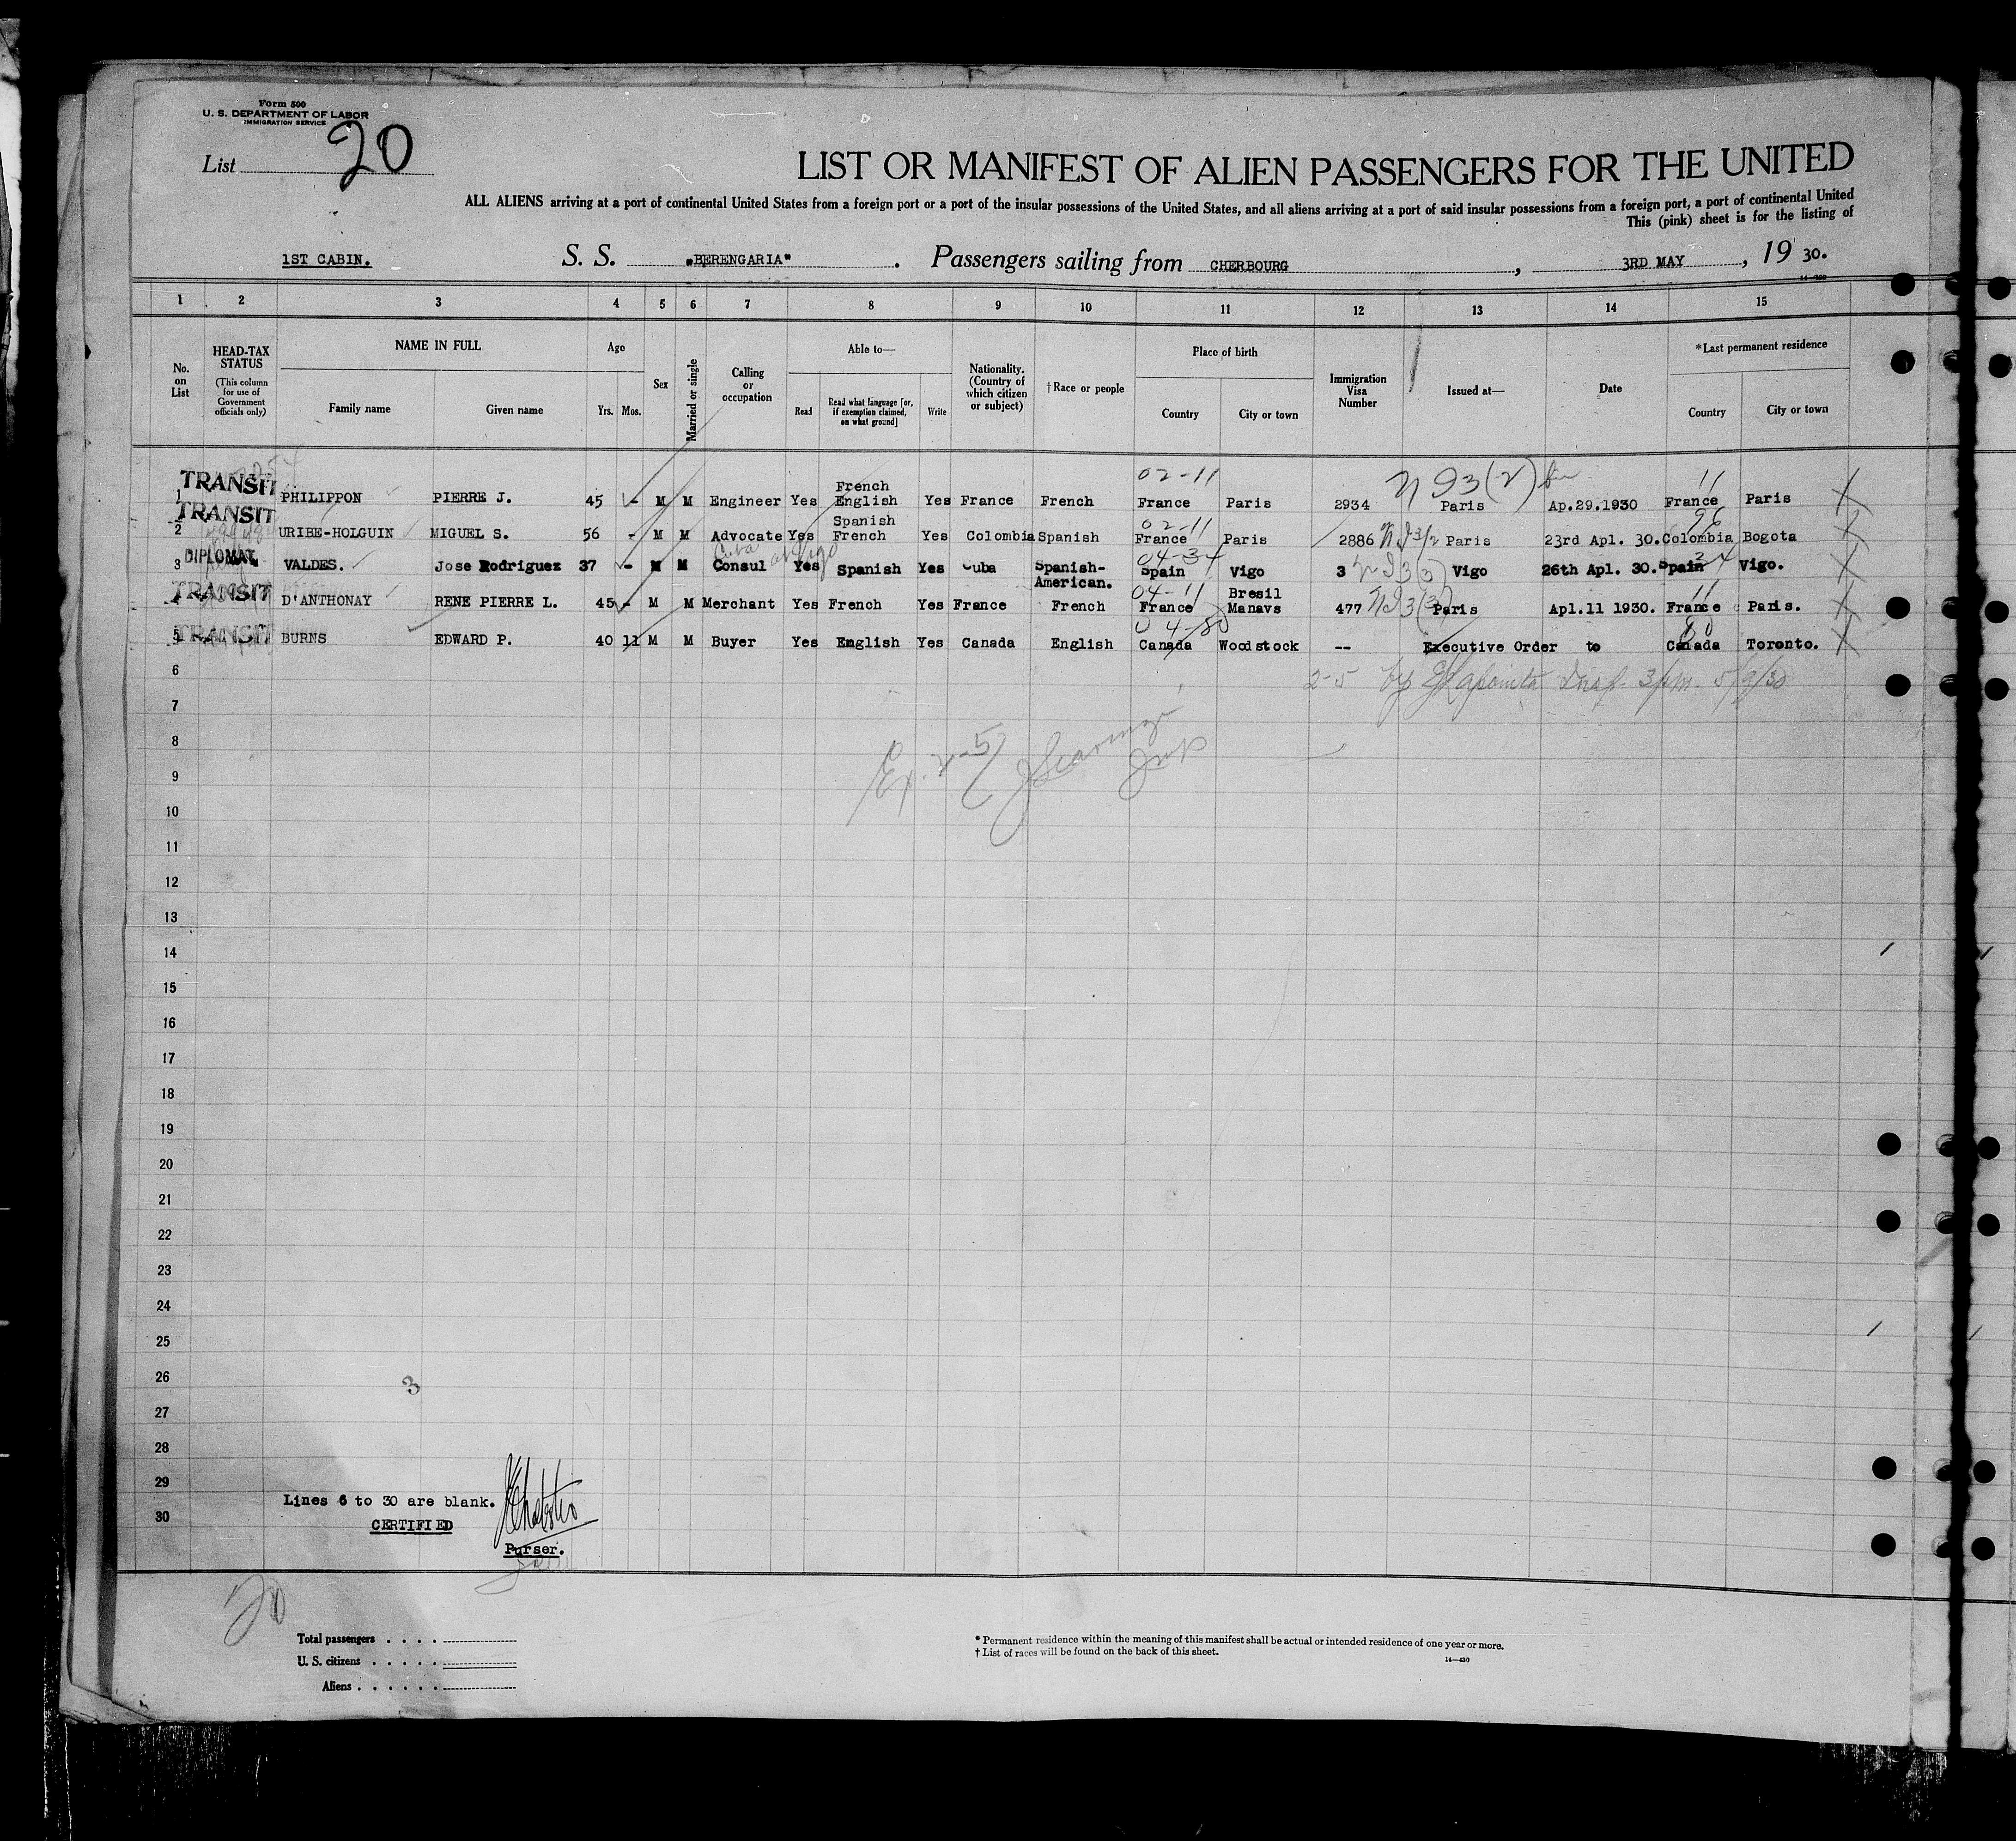 Form 500
U. S. DEPARTMENT OF LABOR
IMMIGRATION SERVICE
List 20
LIST OR MANIFEST OF ALIEN PASSENGERS FOR THE UNITED
ALL ALIENS arriving at a port of continental United States from a foreign port or a port of the insular possessions of the United States, and all aliens arriving at a port of said insular possessions from a foreign port, a port of continental United
This (pink) sheet is for the listing of
1ST CABIN. S. S. "BERENGARIA". Passengers sailing from CHERBOURG, 3RD MAY, 1930.
1 2 3 4 5 6 7 8 9 10 11 12 13 14 15
No. on List
HEAD-TAX STATUS (This column for use of Government officials only)
NAME IN FULL
Family name Given name
Age
Yrs. Mos.
Sex
Married or single
Calling or occupation
Able to—
Read Read what language [or, if exemption claimed, on what ground] Write
Nationality. (Country of which citizen or subject)
†Race or people
Place of birth
Country City or town
Immigration Visa Number
Issued at—
Date
*Last permanent residence
Country City or town
02-11 11
1 TRANSIT PHILIPPON PIERRE J. 45 - M M Engineer Yes French English Yes France French France Paris 2934 Paris Ap.29.1930 France Paris
02-11 96
2 TRANSIT URIBE-HOLGUIN MIGUEL S. 56 - M M Advocate Yes Spanish French Yes Colombia Spanish France Paris 2886 Paris 23rd Apl. 30. Colombia Bogota
Cuba at Vigo 04-34 24
3 DIPLOMAT VALDES. Jose Rodriguez 37 - M M Consul Yes Spanish Yes Cuba Spanish-American. Spain Vigo 3 Vigo 26th Apl. 30. Spain Vigo.
04-11 11
4 TRANSIT D'ANTHONAY RENE PIERRE L. 45 - M M Merchant Yes French Yes France French France Bresil Manavs 477 Paris Apl.11 1930. France Paris.
04-80 80
5 TRANSIT BURNS EDWARD P. 40 11 M M Buyer Yes English Yes Canada English Canada Woodstock -- Executive Order to Canada Toronto.
6 2-5 by Insp. 3 pm. 5/9/30
7
8
9
10
11
12
13
14
15
16
17
18
19
20
21
22
23
24
25
26
3
27
28
29
Lines 6 to 30 are blank.
30
CERTIFIED
Purser.
20
Total passengers
U. S. citizens
Aliens
* Permanent residence within the meaning of this manifest shall be actual or intended residence of one year or more.
† List of races will be found on the back of this sheet.
14—430